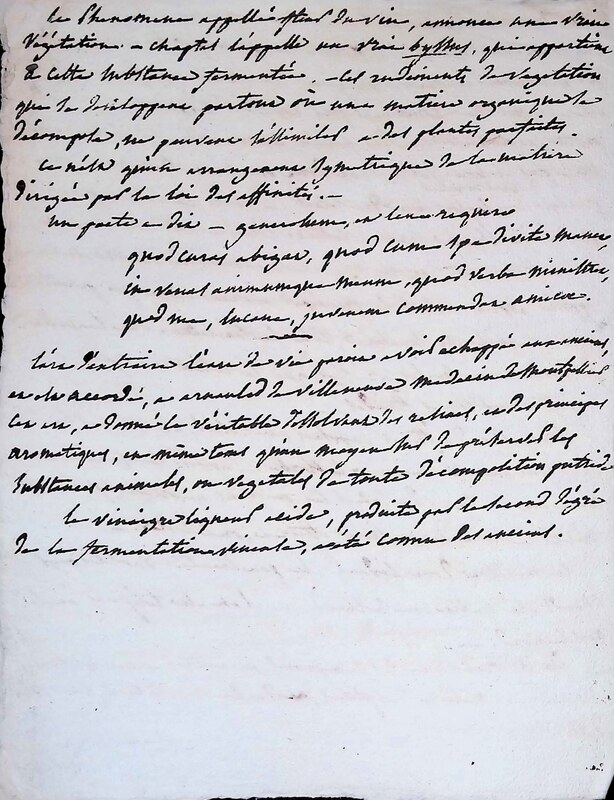 le phenomene appellé fleur du vin, annonce une vraie
végétation. - chaptal l'appelle un vrai byssus, qui appartient
a cette substance fermentée. - ces rudiments de végétation
qui se developpent partout où une matiere organique se
décompose, ne peuvent s'assimiler a des plantes parfaites.
ce n'est qu'un arrangement symetrique de la matiere
dirigée par la loi des affinités. -
un poete a dit - generosum, et lene requiro
quod curas abigat, quod cum spe divite manet
in venas animumque meum, quod verba ministret,
quod me, lucane, juvenem commendet amicae.
l'art d'extraire l'eau de vie paroit avoir echappé aux anciens,
et on accorde, a arnauld de villeneuve medecin de Montpellier
cet art, a donné le véritable dissolvant des resines, et des principes
aromatiques, en même tems qu'un moyen sur de préserver les
substances animales, ou vegetales de toute décomposition putride
le vinaigre liqueur acide, produite par le second dégré
de la fermentation vineuse, a été connu des anciens.